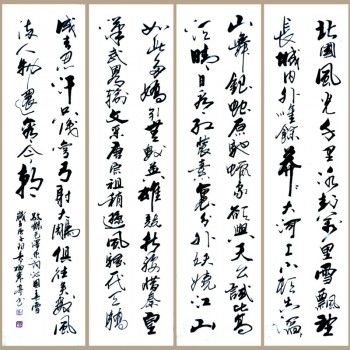 北國風光千里冰封萬里雪飄望
長城内外惟餘莽莽大河上下頓失滔滔
山舞銀蛇原馳蠟象欲與天公試比高
須晴日看紅裝素裹分外妖嬈江山
如此多嬌引無數英雄競折腰惜秦皇
漢武略輸文采唐宗宋祖稍遜風騷一代天驕
成吉思汗只識彎弓射大鵰俱往矣數風
流人物還看今朝
敬錄毛澤東詞沁園春雪